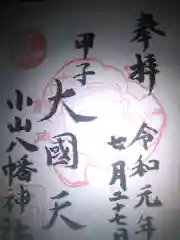 奉拝
令和元年
廿月二十七日
甲子
大國天
小山八幡神社